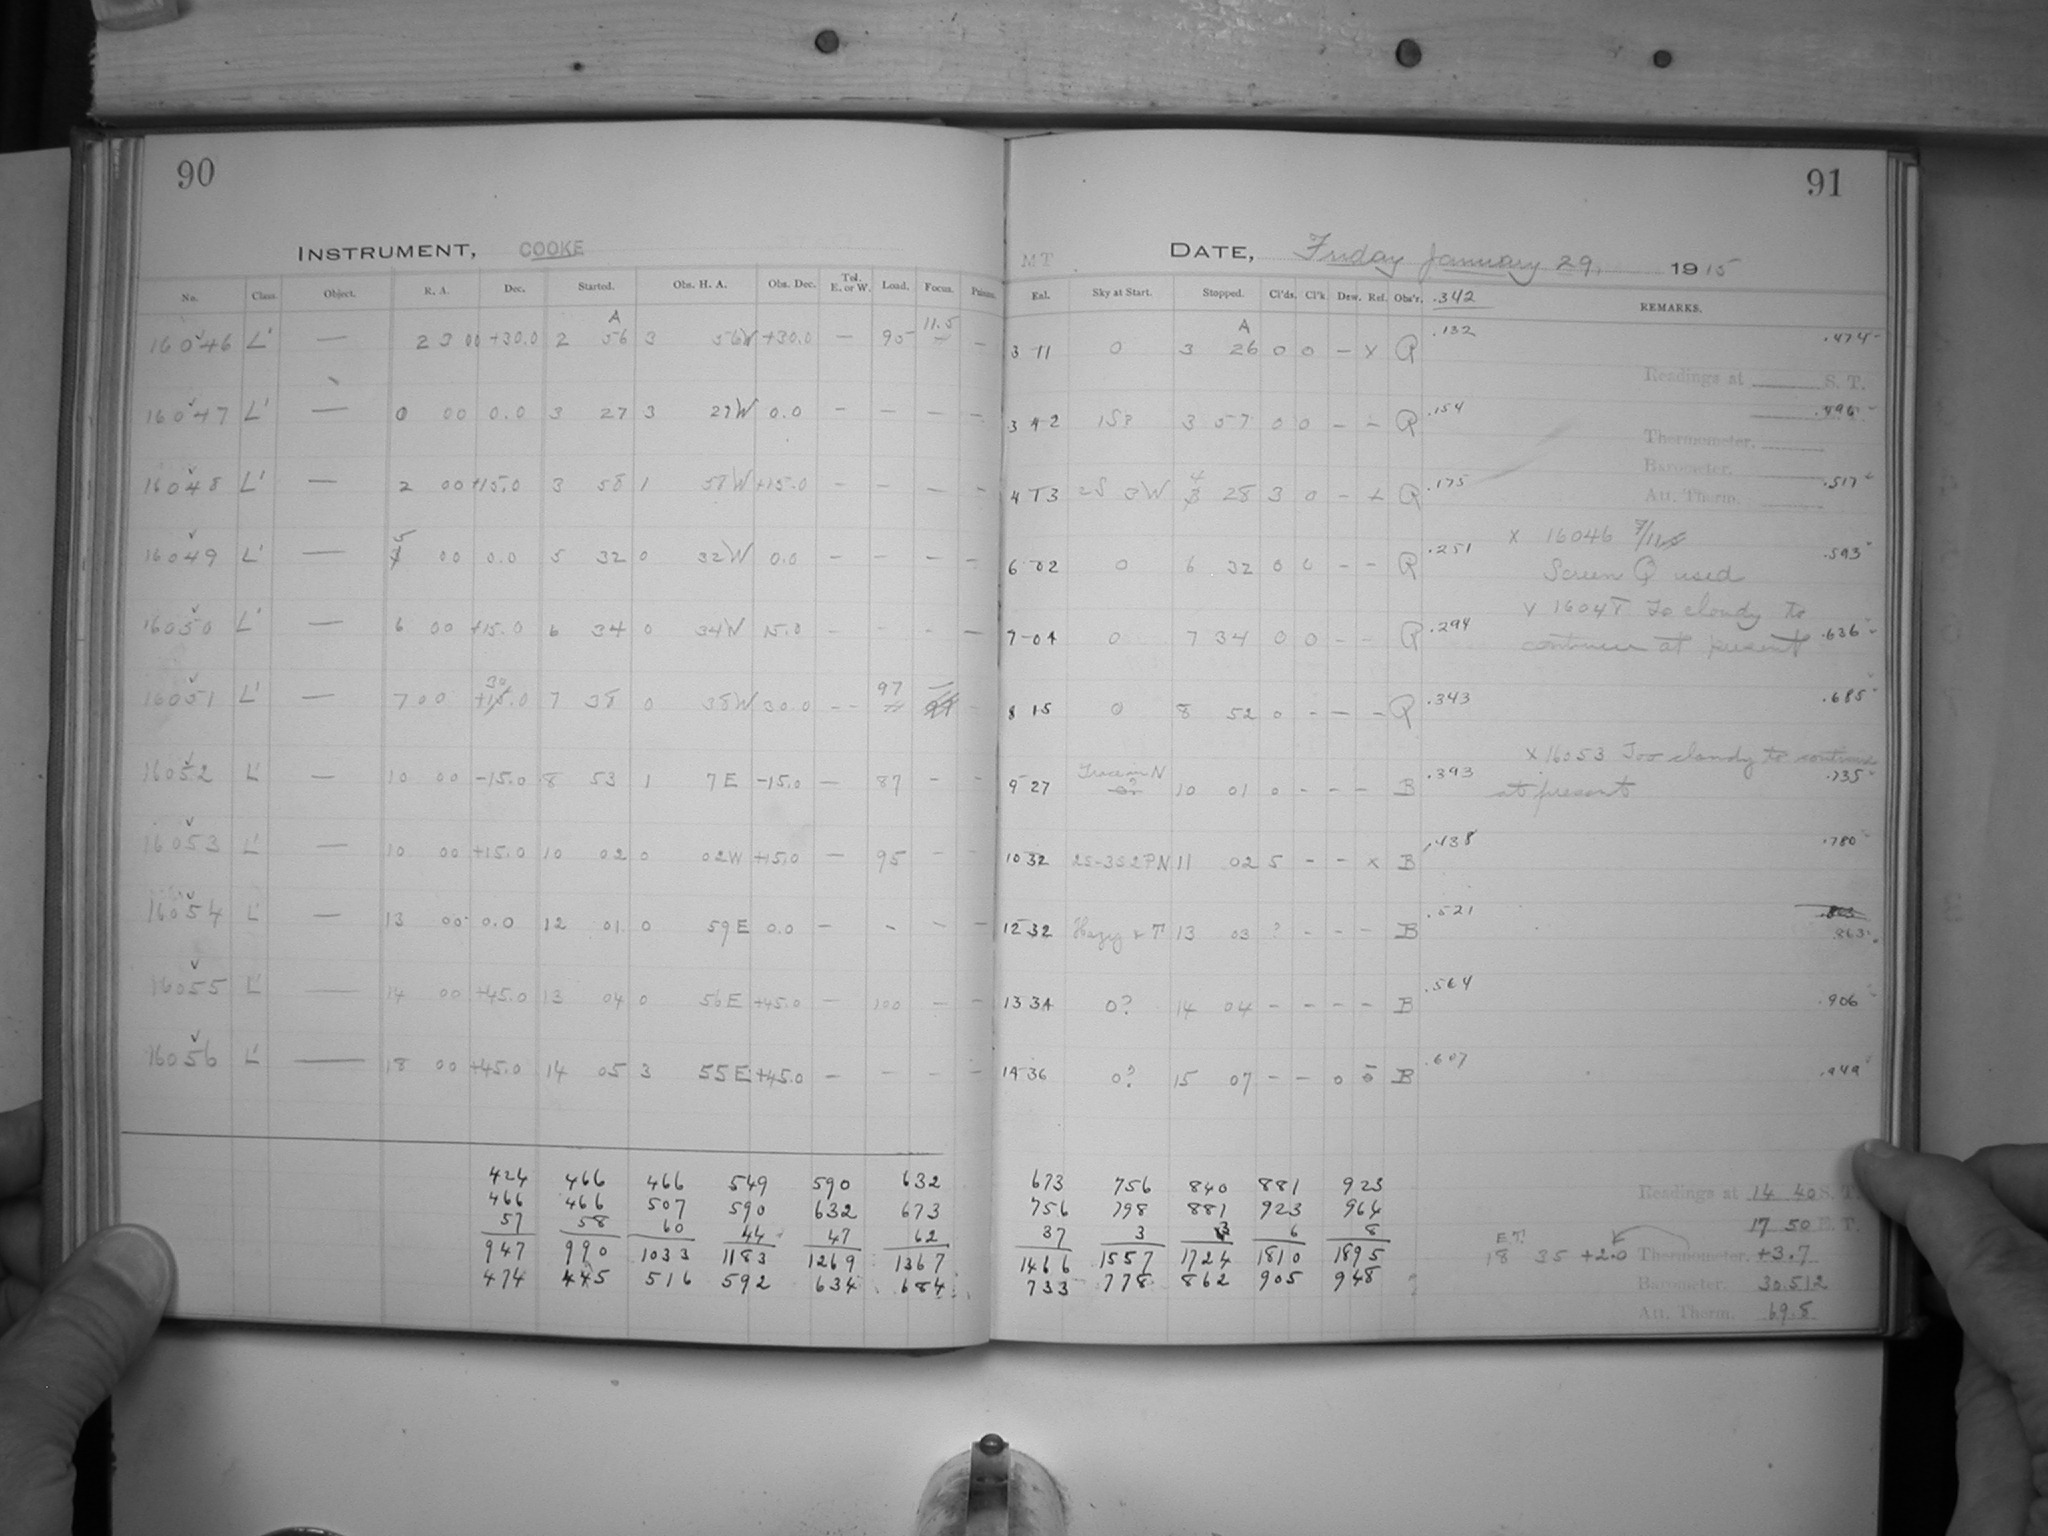 90
INSTRUMENT, COOKE
No. Class. Object. R. A. Dec. Started. Obs. H. A. Obs. Dec. Tel. E. or W. Load. Focus. Prisms.
16046 L' — 23 00 +30.0 2 A 56 3 56W +30.0 — 95 11.5 —
16047 L' — 0 00 0.0 3 27 3 27W 0.0 — — — —
16048 L' — 2 00 +15.0 3 58 1 58W +15.0 — — — —
16049 L' — 5 00 0.0 5 32 0 32W 0.0 — — — —
16050 L' — 6 00 +15.0 6 34 0 34W 15.0 — — — —
16051 L' — 7 00 30 +15.0 7 38 0 38W 30.0 — — 97 — —
16052 L' — 10 00 -15.0 8 53 1 7E -15.0 — 87 — —
16053 L' — 10 00 +15.0 10 02 0 02W +15.0 — 95 — —
16054 L' — 13 00 0.0 12 01 0 59E 0.0 — — — —
16055 L' — 14 00 +45.0 13 04 0 56E +45.0 — 100 — —
16056 L' — 18 00 +45.0 14 05 3 55E +45.0 — — — —
424 466 466 549 590 632
466 466 507 590 632 673
57 58 60 44 47 62
947 990 1033 1183 1269 1367
474 445 516 592 634 684
91
MT DATE, Friday January 29, 1915
Eal. Sky at Start. Stopped. Cl'ds. Cl'k. Dew. Ref. Obs'r. .342 REMARKS.
3 11 0 3 A 26 0 0 — x Q .132 .474
Readings at S. T.
3 42 1S? 3 57 0 0 — — Q .154 .496
Thermometer.
Barometer.
4 13 2S 3W 4 28 3 0 — x Q .175 .517
Att. Therm.
6 02 0 6 32 0 0 — — Q .251 x 16046 .593
Screen Q used
7 04 0 7 34 0 0 — — Q .294 Too cloudy to
continue at present .636
8 15 0 8 52 0 — — — Q .343 .685
9 27 Trace in N 10 01 0 — — — B .393 x 16053 Too cloudy to continue
at present .735
10 32 2S-3S2PN 11 02 5 — — x B .438 .780
12 32 Hazy & T 13 03 ? — — — B .521 .863
13 34 0? 14 04 — — — — B .564 .906
14 36 0? 15 07 — — 0 0 B .607 .949
673 756 840 881 923
756 798 881 923 964
37 3 3 6 8
1466 1557 1724 1810 1895
733 778 862 905 948
Readings at 14 40 S. T.
17 50 E. T.
E.T.
18 35 +2.0 Thermometer. +3.7
Barometer. 30.512
Att. Therm. 69.8